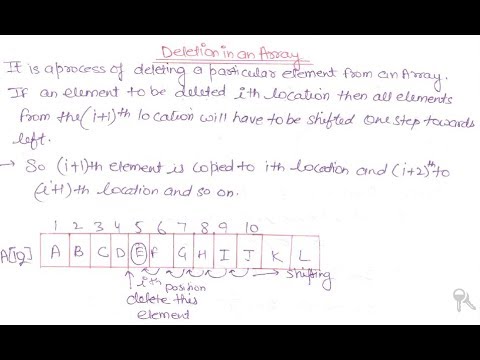 Deletion in an Array
It is a process of deleting a particular element from an Array.
If an element to be deleted ith location then all elements
from the (i+1)th location will have to be shifted one step towards
left.
→ So (i+1)th element is copied to ith location and (i+2)th to
(i+1)th location and so on.
1 2 3 4 5 6 7 8 9 10
A[12] A B C D E F G H I J K L
ith position
shifting
delete this
element